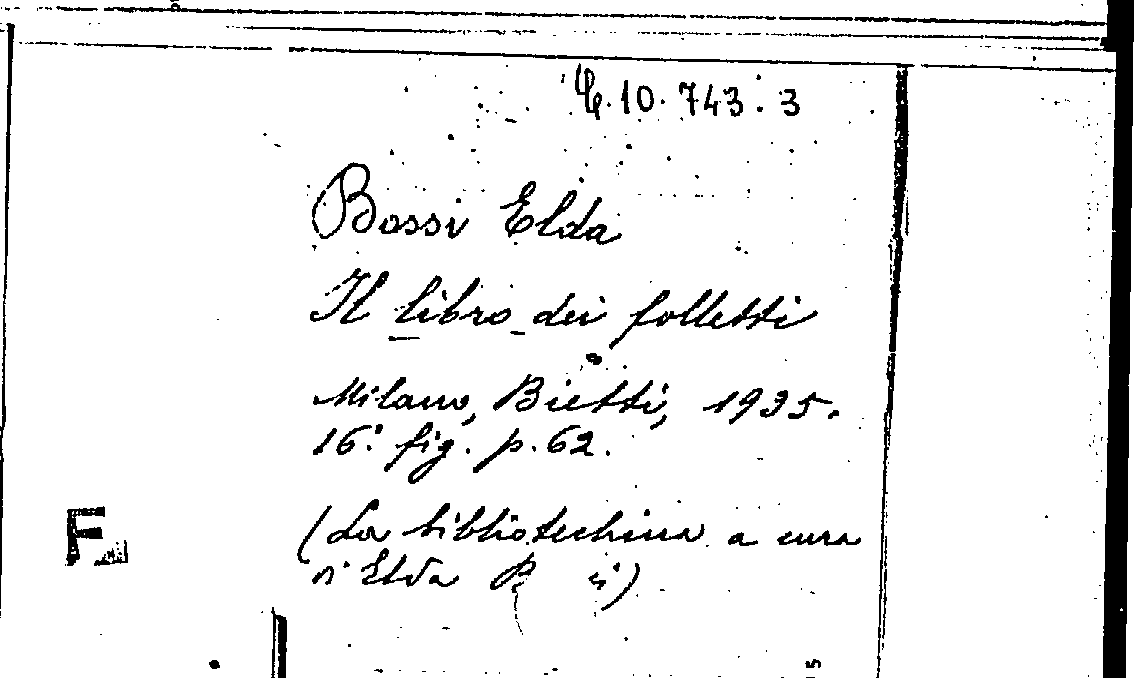 10. 743. 3
Bossi Elda
Il libro dei folletti
Milano, Bietti, 1935.
16.° fig. p. 62.
(La bibliotechina a cura
di Elda
F